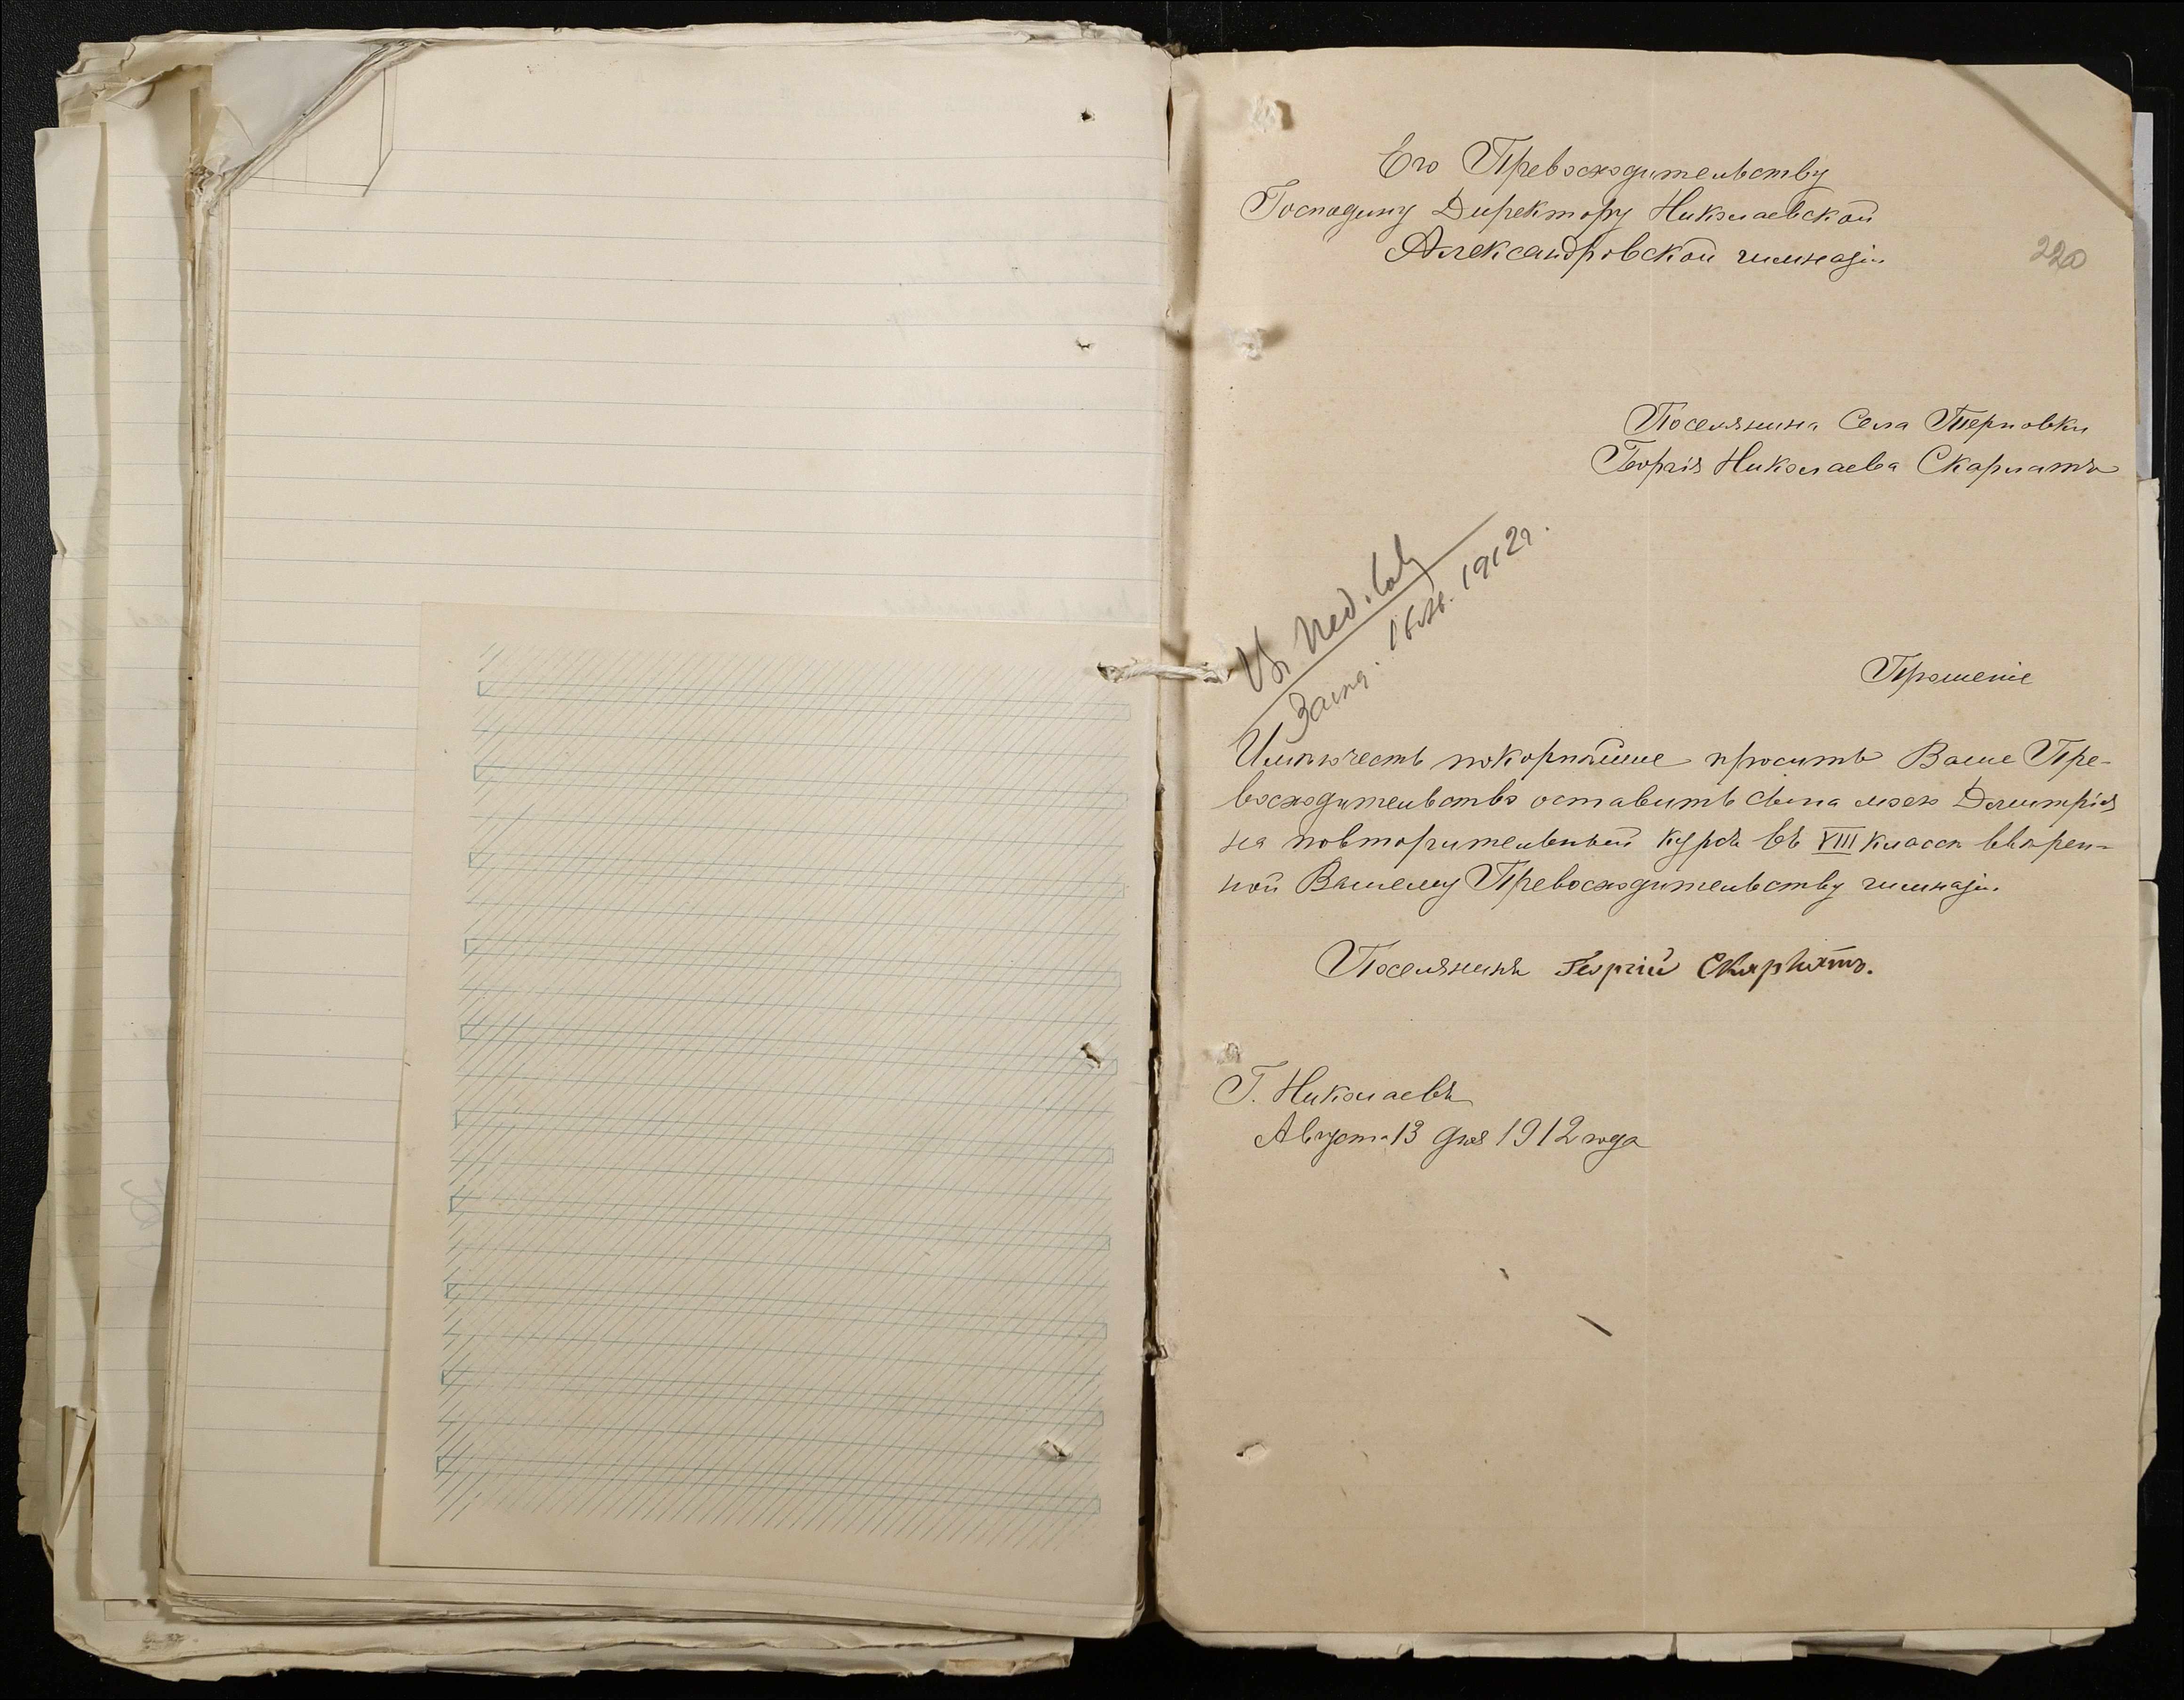 Его Превосходительству
Господину Директору Николаевской
Александровской гимназіи
220
Поселянина Села Терновки
Георгія Николаева Скарлатъ
Въ Пед. Сов.
16 1912 г.
Прошеніе
Имѣю честь покорнѣйше просить Ваше Пре-
восходительство оставить сына моего Дмитрія
на повторительный курсъ въ VIII классѣ ввѣрен-
ной Вашему Превосходительству гимназіи.
Поселянинъ Георгій Скарлатъ.
Г. Николаевъ
Августа 13 дня 1912 года